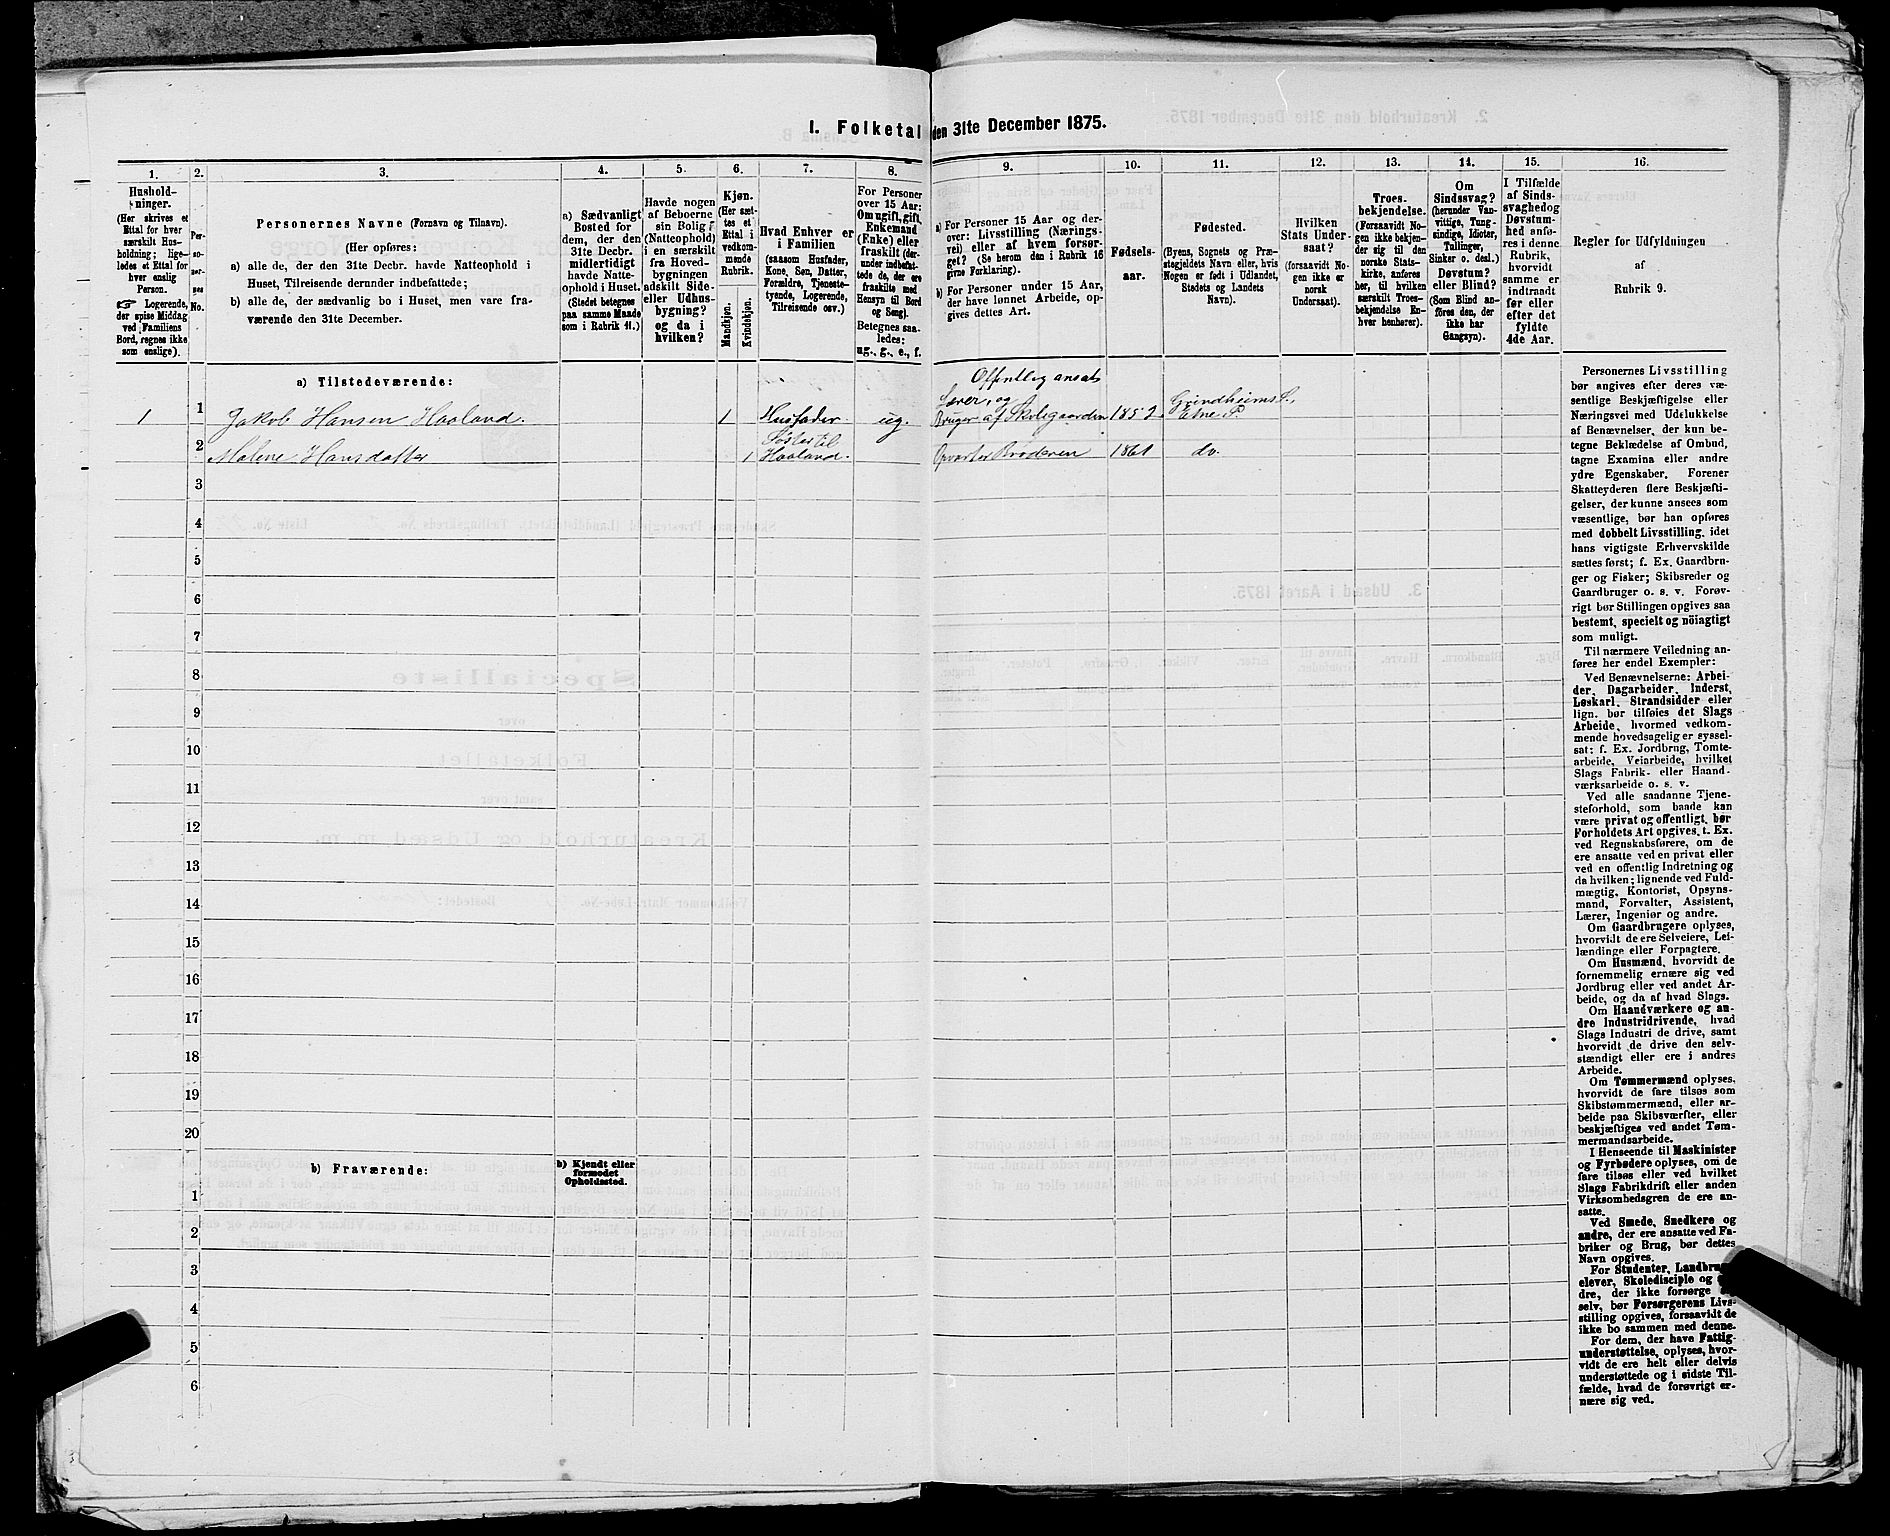 1. Folketal den 31te December 1875.
1.
Hushold-
ninger.
(Her skrives et
Ettal for hver
særskilt Hus-
holdning; lige-
ledes et Ettal for
hver enslig
Person.
☞ Logerende,
der spise Middag
ved Familiens
Bord, regnes ikke
som enslige).
2.
Per-
so-
ner-
nes
No.
3.
Personernes Navne (Fornavn og Tilnavn).
(Her opføres:
a) alle de, der den 31te Decbr. havde Natteophold i
Huset, Tilreisende derunder indbefattede;
b) alle de, der sædvanlig bo i Huset, men vare fra-
værende den 31te December.
4.
a) Sædvanligt
Bosted for
dem, der den
31te Decbr.
midlertidigt
havde Natte-
ophold i Huset.
(Stedet betegnes
paa samme Maade
som i Rubrik 11.)
5.
Havde nogen
af Beboerne
sin Bolig
(Natteophold)
i en særskilt
fra Hoved-
bygningen
adskilt Side-
eller Udhus-
bygning?
og da i
hvilken?
6.
Kjøn.
(Her sæt-
tes et
Ettal i
vedkom-
mende
Rubrik.
Mandkjøn.
Kvindekjøn.
7.
Hvad Enhver er
i Familien
(saasom Husfader,
Kone, Søn, Datter,
Forældre, Tjeneste-
tyende, Logerende,
Tilreisende osv.)
8.
For Personer
over 15 Aar:
Om ugift, gift,
Enkemand
(Enke) eller
fraskilt (der-
under indbefat-
tede de, der ere
fraskilte med
Hensyn til Bord
og Seng).
Betegnes saa-
ledes:
ug., g., e., f.
9.
a) For Personer 15 Aar og der-
over: Livsstilling (Nærings-
vei) eller af hvem forsør-
get? (Se herom den i Rubrik 16
givne Forklaring).
b) For Personer under 15 Aar,
der have lønnet Arbeide, op-
gives dettes Art.
10.
Fødsels-
aar.
11.
Fødested.
(Byens, Sognets og Præ-
stegjeldets Navn eller, hvis
Nogen er født i Udlandet,
Stedets og Landets
Navn).
12.
Hvilken
Stats Under-
saat?
(forsaavidt No-
gen ikke er
norsk
Undersaat).
13.
Troes-
bekjendelse.
(Forsaavidt No-
gen ikke bekjen-
der sig til den
norske Stats-
kirke, anføres
her, til hvilken
særskilt Troes-
bekjendelse En-
hver henhører).
14.
Om
Sindssvag?
(herunder Van-
vittige, Tung-
sindige, Idioter,
Tullinger,
Sinker o. desl.)
Døvstum?
eller Blind?
(Som Blind an-
føres den, der
ikke har
Gangsyn).
15.
I Tilfælde
af Sinds-
svaghed og
Døvstum-
hed anfø-
res i denne
Rubrik,
hvorvidt
samme er
indtraadt
før eller
efter det
fyldte
4de Aar.
16.
Regler for Udfyldningen
af
Rubrik 9.
a) Tilstedeværende:
Offentlig ansat
Lærer, og
1 1 Jakob Hansen Haaland. 1 Husfader ug. Bruger af Skolegaarden 1852 Grindheims S., Etne P
2 Malene Hansdatter 1 Søster til Haaland. Opvarter Broderen 1861 do.
3
4
5
6
7
8
9
10
11
12
13
14
15
16
17
18
19
20
b) Fraværende:
b) Kjendt eller
formodet
Opholdssted.
1
2
3
4
5
6
Personernes Livsstilling
bør angives efter deres væ-
sentlige Beskjæftigelse eller
Næringsvei med Udelukkelse
af Benævnelser, der kun be-
tegne Beklædelse af Ombud,
tagne Examina eller andre
ydre Egenskaber. Forener
Skatteyderen flere Beskjæfti-
gelser, der kunne ansees som
væsentlige, bør han opføres
med dobbelt Livsstilling, idet
hans vigtigste Erhvervskilde
sættes først; f. Ex. Gaardbru-
ger og Fisker; Skibsreder og
Gaardbruger o. s. v. Forøv-
rigt bør Stillingen opgives saa
bestemt, specielt og nöiagtigt
som muligt.
Til nærmere Veiledning an-
føres her endel Exempler:
Ved Benævnelserne: Arbei-
der, Dagarbeider, Inderst,
Løskarl, Strandsidder eller
lign. bør tilføies det Slags
Arbeide, hvormed vedkom-
mende hovedsagelig er syssel-
sat; f. Ex. Jordbrug, Tomte-
arbeide, Veiarbeide, hvilket
Slags Fabrik- eller Haand-
værksarbeide o. s. v.
Ved alle saadanne Tjene-
steforhold, som baade kan
være privat og offentligt, bør
Forholdets Art opgives, t. Ex.
ved Regnskabsførere, om de
ere ansatte ved en privat eller
ved en offentlig Indretning og
da hvilken; lignende ved Fuld-
mægtig, Kontorist, Opsyns-
mand, Forvalter, Assistent,
Lærer, Ingeniør og andre.
Om Gaardbrugere oplyses,
hvorvidt de ere Selveiere, Lei-
lændinge eller Forpagtere.
Om Husmænd, hvorvidt de
fornemmelig ernære sig ved
Jordbrug eller ved andet Ar-
beide, og da af hvad Slags.
Om Haandværkere og an-
dre Industridrivende, hvad
Slags Industri de drive, samt
hvorvidt de drive den selv-
stændigt eller ere i andres
Arbeide.
Om Tømmermænd oplyses,
hvorvidt de fare tilsøs som
Skibstømmermænd, eller ar-
beide paa Skibsværfter, eller
beskjæftiges ved andet Tøm-
mermandsarbeide.
I Henseende til Maskinister
og Fyrbødere oplyses, om de
fare tilsøs eller ved hvilket
Slags Fabrikdrift eller anden
Virksomhedsgren de ere an-
satte.
Ved Smede, Snedkere og
andre, der ere ansatte ved Fa-
briker og Brug, bør dettes
Navn opgives.
For Studenter, Landbrugs-
elever, Skoledisciple og
dre, der ikke forsørge
selv, bør Forsørgerens Livs-
stilling opgives, forsaavidt de
ikke bo sammen med denne.
For dem, der have Fattig-
understøttelse, oplyses, hvor-
vidt de ere helt eller delvis
understøttede og i sidste Til-
fælde, hvad de forøvrigt er-
nære sig ved.